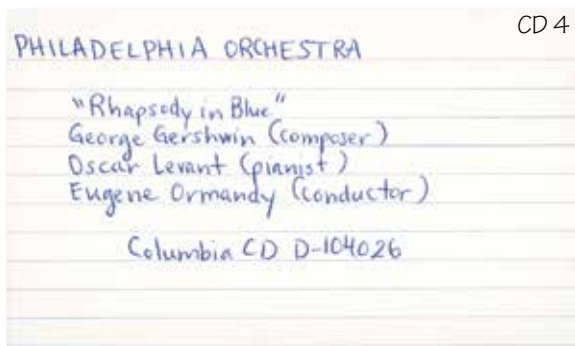 CD 4
PHILADELPHIA ORCHESTRA
"Rhapsody in Blue"
George Gershwin (composer)
Oscar Levant (pianist)
Eugene Ormandy (conductor)
Columbia CD D-104026